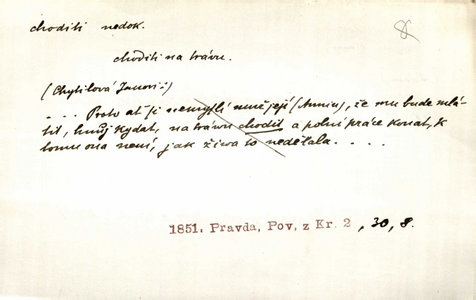 choditi nedok.
choditi na trávu.
(Chytilová Janovi:)
. . . Proto ať si nemyslí muž její (Annin), že mu bude mlá-
tit, hnůj kydat, na trávu chodit a polní práce konat, k
tomu ona není, jak živa to nedělala. . . .
1851. Pravda, Pov. z Kr. 2, 30, 8.